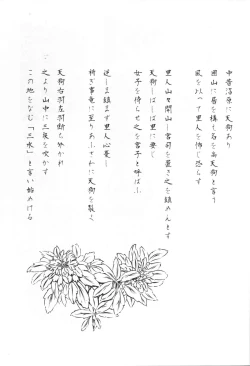 中昔沼原に天狗あり
山に居を構え名を天狗と言う
風を以って里人を怖じ恐らす
里人山を開山し宮司を置き之を鎮めんとす
天狗しばしば里に
女子を侍らせ之を宮子と呼ばふ
逆しま鎮まず里人心憂し
祈き事竜に至りあふさわに天狗を裂く
天狗右羽左羽断ち分かれ
之より山中に三度を吹かす
この地をなじ「三水」と言い始めける